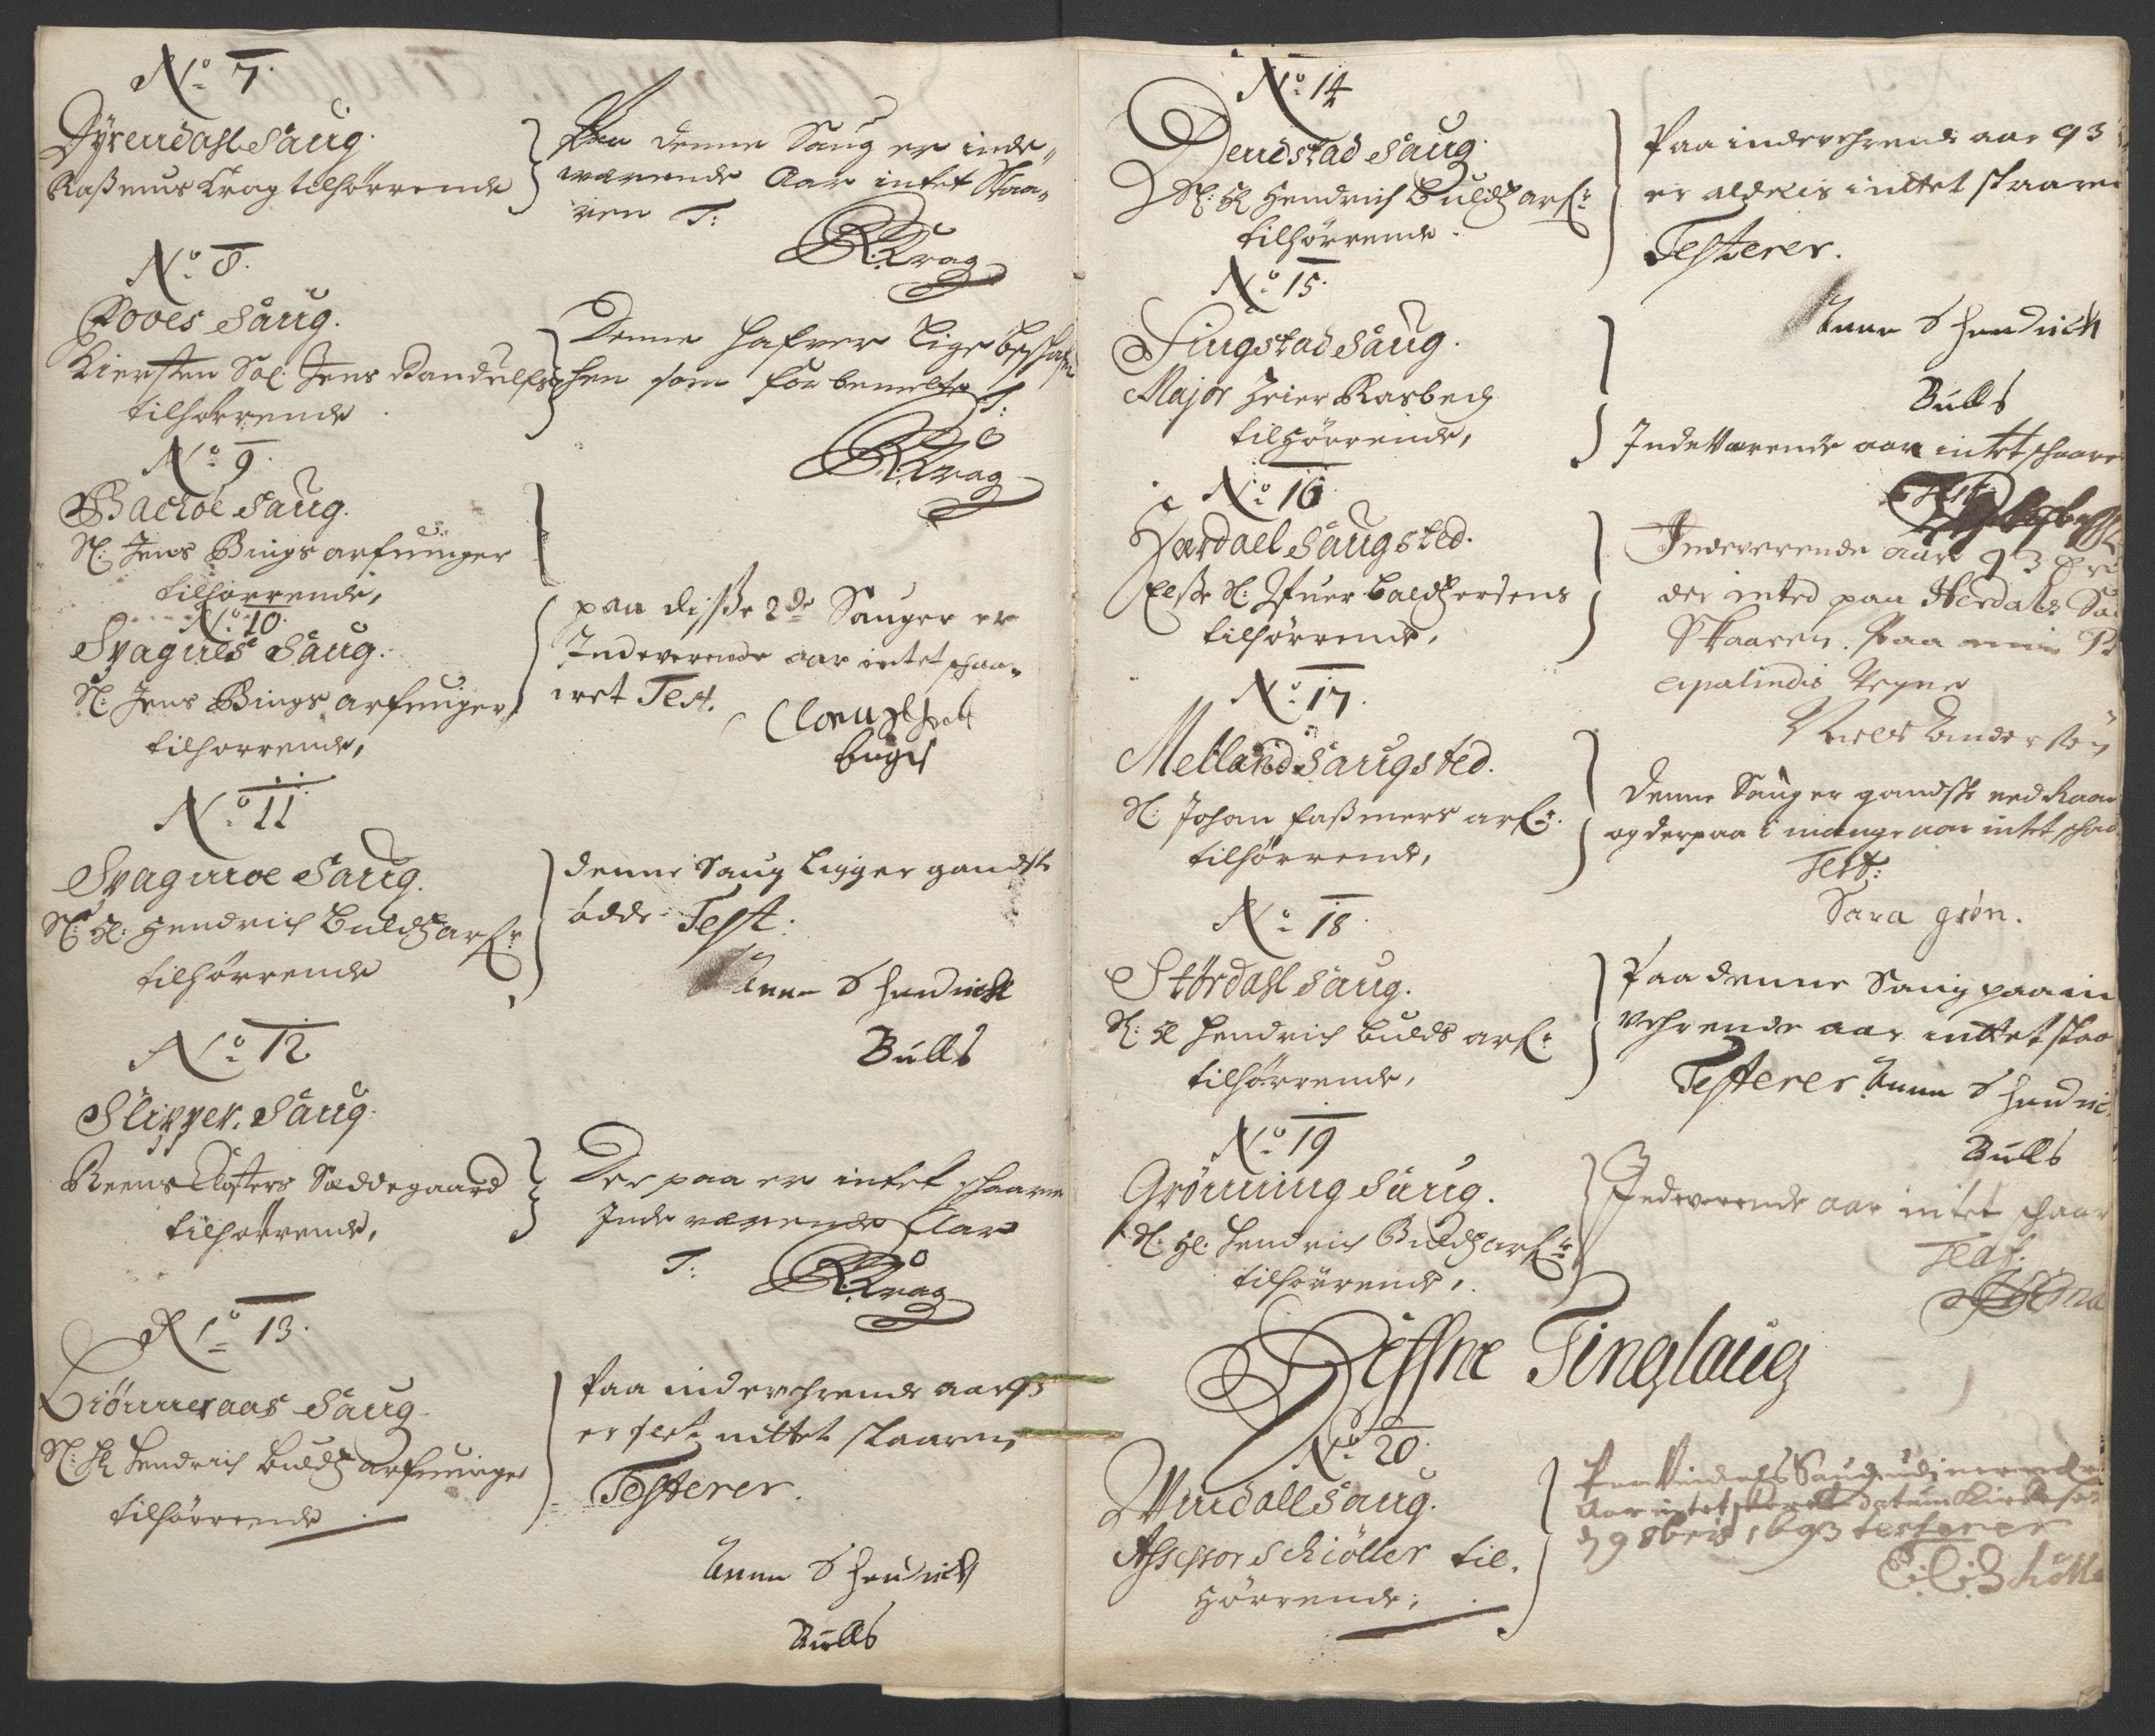 No 7.
Dyrendahl Saug.
Rasmus Krag tilhørrende
Paa denne Saug er inde„
werende Aar intet Skaa„
ren T:
R: Krag
No 8.
Foves Saug.
Kiersten Sal. Jens Randulfs
tilhørrende
Denne hafver lige beschaf
hen som forbenelte T:
R: Krag
No 9.
Bachoe Saug.
Sl: Jens Bings arfuinger
tilhørrende,
No 10.
Spagnes Saug.
Sl: Jens Bings arfuinger
tilhørrende,
paa disse 2de Sauger er
Indeverende aar intet schaa„
ret Test.
No 11
Spagmoe Saug.
Sl: Hl: Hendrich Buldtz arfr
tilhørrende
denne Saug ligger gandske
ødde Test:
Anna S Hendrichs
Bulls
No 12
Slipper Saug.
Reens Closters Sæddegaard
tilhørrende,
Der paa er intet schaaren
Inde værende Aar
T:
R: Krag
No 13.
Liømeraas Saug
Sl: Hl Hendrich Buldtz arfuinger
tilhørrende
Paa indevehrende aar 93
er slet nittet skaaren
Testerer.
Anna S Hendrichs
Bulls
No 14
Denstad Saug.
Sl: Hl Hendrich Buldtz arfr:
tilhørrende.
Paa indevehrende aar 93
er aldelis inttet skaaren
Testerer.
Anna S Hendrich
Bulls
No 15.
Singstad Saug.
Major Heier Basbech
tilhørrende,
Indeværende aar intet schaare
No 16
Hærdael Saugsted.
Else Sl: Ifuer Baldtzersens
tilhørrende,
Indeverende aar 93 er
der inted paa Herdals Sa
Skaaren. Paa min Pr
cipalindis Vegne
Niels Andersen
No 17.
Melland Saugsted.
Sl: Johan Casmers arfr:
tilhørrende,
Denne Saug er gandske nedraan
og derpaa i mange aar intet schaa
Test:
Sara grøn.
No 18
Størdahl Saug.
Sl: Hl Hendrich Bulds arfr:
tilhørrende,
Paa denne Saug paa in
vehrende aar inttet skaa
Testerer Anna S Hendric
Bulls
No 19
Grønning Saug.
Sl: Hl: Hendrich Buldtz arfr:
tilhørrende,
Indeverende aar intet schaar
Test.
Giessne Tinglaug
No 20.
Windall Saug.
Assessor Schiøller til„
hørrende;
Paa Vindals Saug udj nerværende
Aar intet skaaret datum
d 9 8bris 1693 testerer